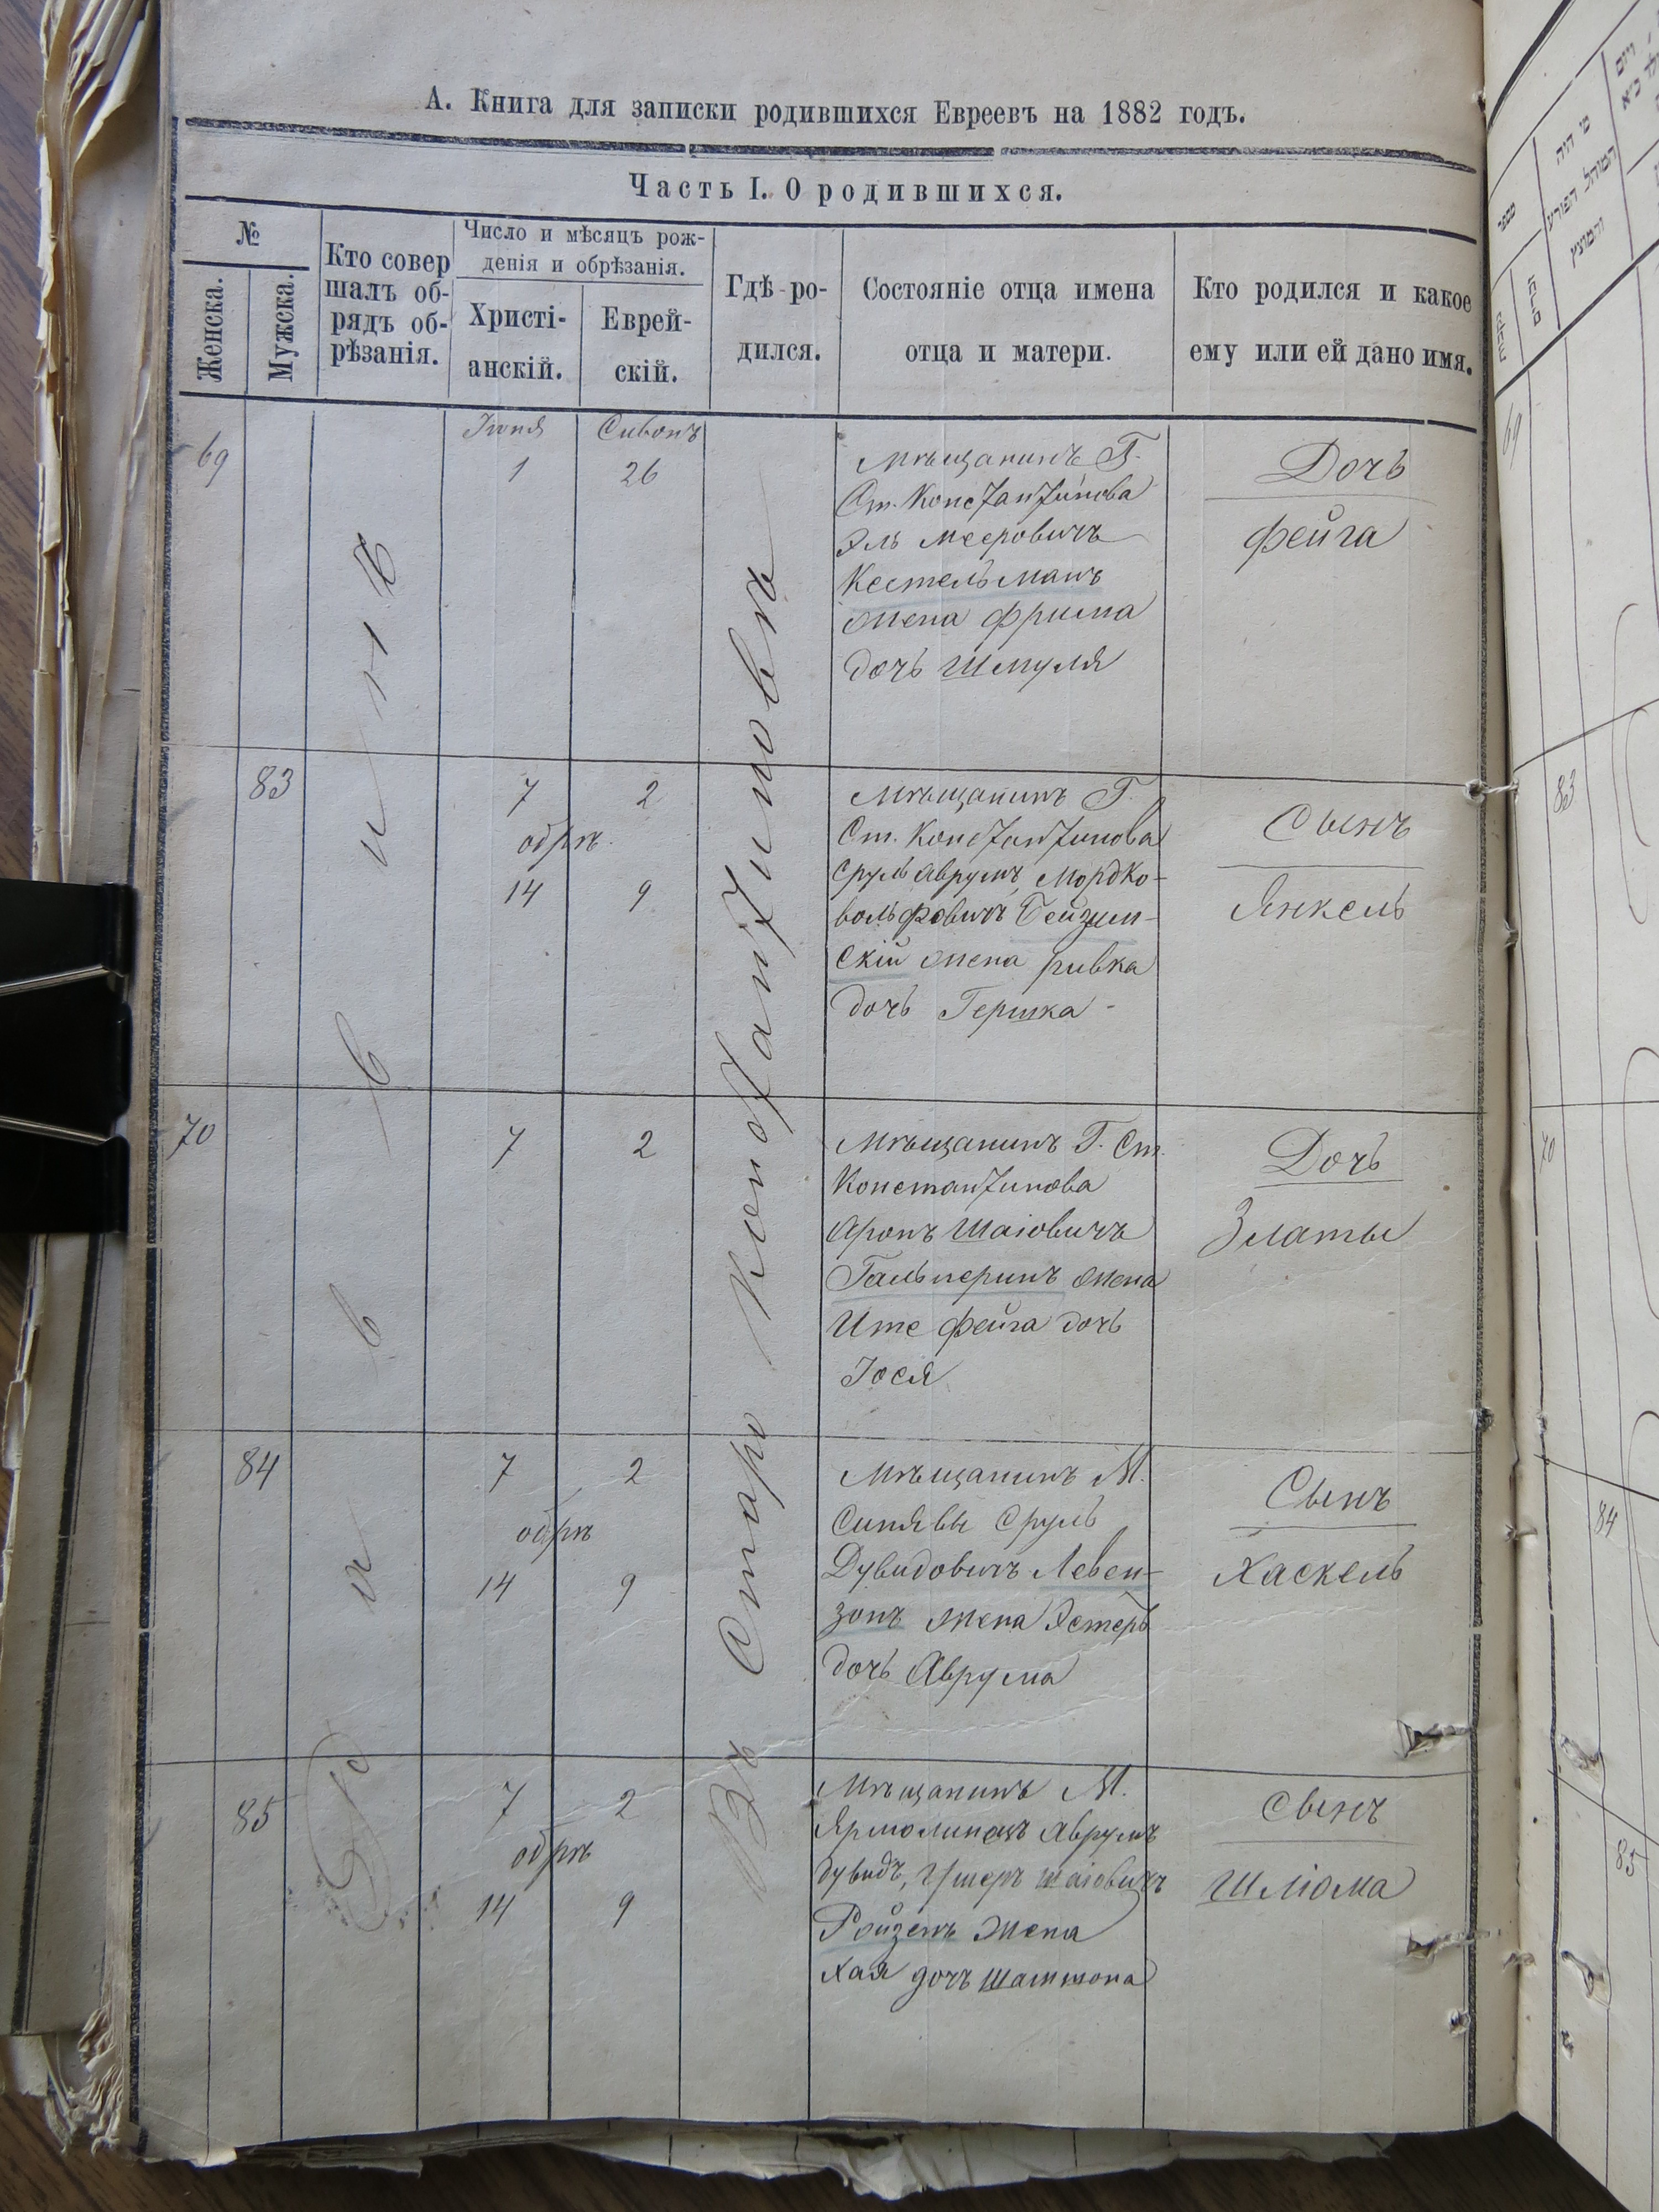 А. Книга для записки родившихся Евреевъ на 1882 годъ.
Часть I. О родившихся.
№
Женска.
Мужска.
Кто совер
шалъ об-
рядъ об-
рѣзанія.
Число и мѣсяцъ рож-
денія и обрѣзанія.
Христі-
анскій.
Еврей-
скій.
Гдѣ ро-
дился.
Состояніе отца имена
отца и матери.
Кто родился и какое
ему или ей дано имя.
Іюня
Сивонъ
Въ Старо Константиновѣ
69
1
26
Мѣщанинъ Г.
Ст. Константинова
Эль Мееровичъ
Кестельманъ
жена Фрима
дочь Шмуля
Дочь
Фейга
83
7
2
обрѣ.
14
9
Мѣщанинъ Г.
Ст. Константинова
Сруль Аврумъ Мордко-
вольфовичъ Бейзим-
скій жена Ривка
дочь Гершка
Сынъ
Янкель
70
7
2
Мѣщанинъ Г. Ст.
Константинова
Аронъ Шаіовичъ
Гальперинъ жена
Ите Фейга дочь
Іося
Дочь
Златы
84
7
2
обрѣ
14
9
Мѣщанинъ М.
Синявы Сруль
Дувидовичъ Левен-
зонъ жена Эстеръ
дочь Аврума
Сынъ
Хаскель
85
7
2
обрѣ
14
9
Мѣщанинъ М.
Ярмолинецъ Аврумъ
Дувидъ, Ушеръ Шаіовичъ
Ройзенъ жена
Хая дочь
Сынъ
Шліома
69
83
70
84
85